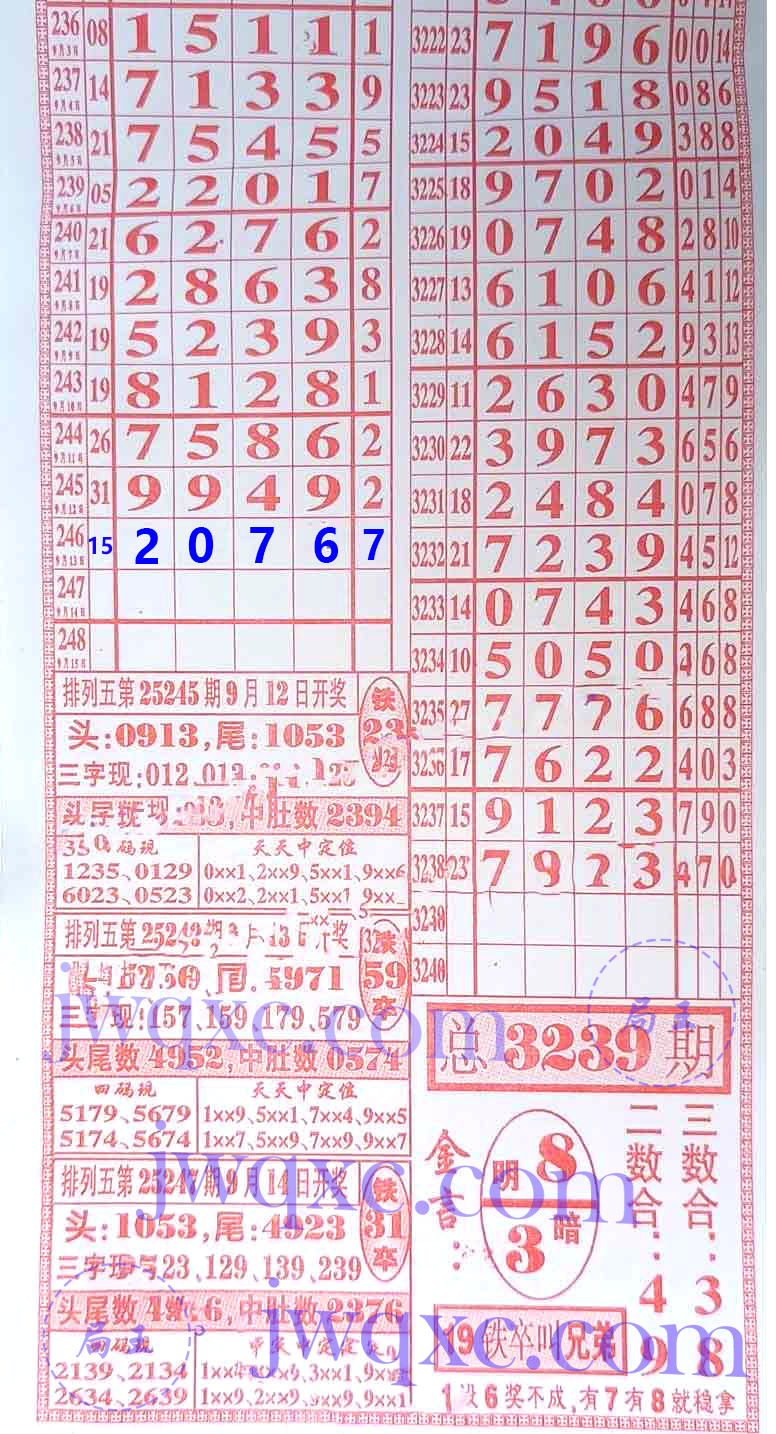 236 9月3日 08 1 5 1 1 1
237 9月4日 14 7 1 3 3 9
238 9月5日 21 7 5 4 5 5
239 9月6日 05 2 2 0 1 7
240 9月7日 21 6 2 7 6 2
241 9月8日 19 2 8 6 3 8
242 9月9日 19 5 2 3 9 3
243 9月10日 19 8 1 2 8 1
244 9月11日 26 7 5 8 6 2
245 9月12日 31 9 9 4 9 2
246 9月13日 15 2 0 7 6 7
247 9月14日
248 9月15日
排列五第25245期9月12日开奖
头:0913,尾:1053
铁
三字现:012
中肚数2394
码现
天天中定位
1235、0129
0××1、2××9、5××1、9××6
6023、0523
0××2、2××1、5××1
排列五第
奖
铁 59 卒
4971
157、159、179、579
头尾数4952,中肚数0574
四码现
天天中定位
5179、5679
1××9、5××1、7××4、9××5
5174、5674
1××7、5××9、7××9、9××7
排列五第25247期9月14日开奖
铁 31 卒
头:1053,尾:4923
三字现
23、129、139、239
头尾数
中肚数2376
码现
2139、2134
2634、2639
1××9、2××9
3222 23 7 1 9 6 0 0 14
3223 23 9 5 1 8 0 8 6
3224 15 2 0 4 9 3 8 8
3225 18 9 7 0 2 0 1 4
3226 19 0 7 4 8 2 8 10
3227 13 6 1 0 6 4 1 12
3228 14 6 1 5 2 9 3 13
3229 11 2 6 3 0 4 7 9
3230 22 3 9 7 3 6 5 6
3231 18 2 4 8 4 0 7 8
3232 21 7 2 3 9 4 5 12
3233 14 0 7 4 3 4 6 8
3234 10 5 0 5 0 6 8
3235 27 7 7 7 6 6 8 8
3236 17 7 6 2 2 4 0 3
3237 15 9 1 2 3 7 9 0
3238 23 7 3 4 7 0
3240
总3239期
金言:
明 8
3 暗
二数合:49
三数合:38
19铁卒叫兄弟
1没6奖不成,有7有8就稳拿
jwqxc.com
jwqxc.com
jwqxc.com
局王
局王